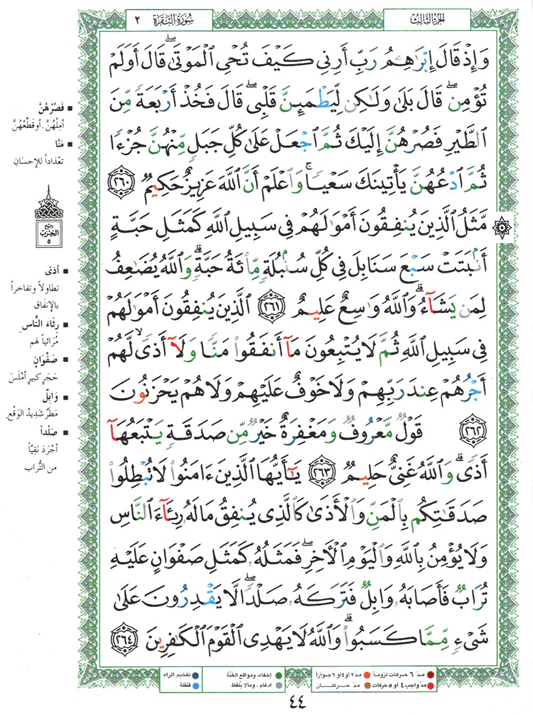 الجزء الثالث
سورة البقرة
٢
وَإِذْ قَالَ إِبْرَاهِـۧمُ رَبِّ أَرِنِى كَيْفَ تُحْىِ ٱلْمَوْتَىٰ ۖ قَالَ أَوَلَمْ
تُؤْمِن ۖ قَالَ بَلَىٰ وَلَـٰكِن لِّيَطْمَئِنَّ قَلْبِى ۖ قَالَ فَخُذْ أَرْبَعَةً مِّنَ
ٱلطَّيْرِ فَصُرْهُنَّ إِلَيْكَ ثُمَّ ٱجْعَلْ عَلَىٰ كُلِّ جَبَلٍ مِّنْهُنَّ جُزْءًا
ثُمَّ ٱدْعُهُنَّ يَأْتِينَكَ سَعْيًا ۚ وَٱعْلَمْ أَنَّ ٱللَّهَ عَزِيزٌ حَكِيمٌ ٢٦٠
مَّثَلُ ٱلَّذِينَ يُنفِقُونَ أَمْوَٰلَهُمْ فِى سَبِيلِ ٱللَّهِ كَمَثَلِ حَبَّةٍ
أَنۢبَتَتْ سَبْعَ سَنَابِلَ فِى كُلِّ سُنۢبُلَةٍ مِّا۟ئَةُ حَبَّةٍ ۗ وَٱللَّهُ يُضَـٰعِفُ
لِمَن يَشَآءُ ۗ وَٱللَّهُ وَٰسِعٌ عَلِيمٌ ٢٦١ ٱلَّذِينَ يُنفِقُونَ أَمْوَٰلَهُمْ
فِى سَبِيلِ ٱللَّهِ ثُمَّ لَا يُتْبِعُونَ مَآ أَنفَقُوا۟ مَنًّا وَلَآ أَذًى ۙ لَّهُمْ
أَجْرُهُمْ عِندَ رَبِّهِمْ وَلَا خَوْفٌ عَلَيْهِمْ وَلَا هُمْ يَحْزَنُونَ
٢٦٢ قَوْلٌ مَّعْرُوفٌ وَمَغْفِرَةٌ خَيْرٌ مِّن صَدَقَةٍ يَتْبَعُهَآ
أَذًى ۗ وَٱللَّهُ غَنِىٌّ حَلِيمٌ ٢٦٣ يَـٰٓأَيُّهَا ٱلَّذِينَ ءَامَنُوا۟ لَا تُبْطِلُوا۟
صَدَقَـٰتِكُم بِٱلْمَنِّ وَٱلْأَذَىٰ كَٱلَّذِى يُنفِقُ مَالَهُۥ رِئَآءَ ٱلنَّاسِ
وَلَا يُؤْمِنُ بِٱللَّهِ وَٱلْيَوْمِ ٱلْـَٔاخِرِ ۖ فَمَثَلُهُۥ كَمَثَلِ صَفْوَانٍ عَلَيْهِ
تُرَابٌ فَأَصَابَهُۥ وَابِلٌ فَتَرَكَهُۥ صَلْدًا ۖ لَّا يَقْدِرُونَ عَلَىٰ
شَىْءٍ مِّمَّا كَسَبُوا۟ ۗ وَٱللَّهُ لَا يَهْدِى ٱلْقَوْمَ ٱلْكَـٰفِرِينَ ٢٦٤
فَصُرْهُنَّ
أمِلْهُنَّ. أو قطِّعْهُنَّ
مَنًّا
تعْداداً للإحسانِ
ربع
الحزب
٥
أذىً
تطاولاً وتفاخراً
بالإنفاق
رئاءَ النّاس
مُرائياً لهم
صفْوانٍ
حَجَرٍ كبيرٍ أمْلَسَ
وابلٌ
مطرٌ شديدُ الوَقْع
صلْداً
أجْرَدَ نقيّاً
من التُّراب
مدّ ٦ حركات لزوماً
مدّ ٢ أو ٤ أو ٦ جوازاً
إخفاء، ومواقع الغُنَّة
تفخيم الراء
مدّ واجب ٤ أو ٥ حركات
مدّ حركتان
ادغام، وما لا يُلفَظ
قلقلة
٤٤